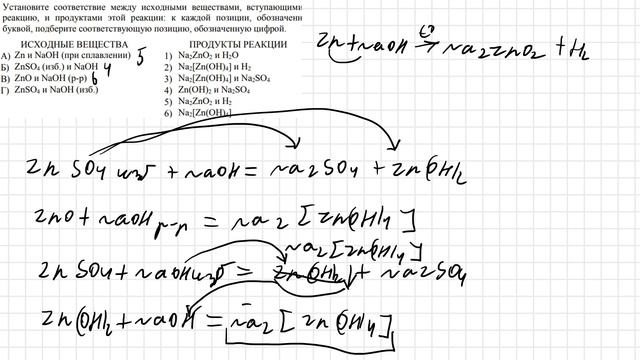 Установите соответствие между исходными веществами, вступающими
реакцию, и продуктами этой реакции: к каждой позиции, обозначенн
буквой, подберите соответствующую позицию, обозначенную цифрой.
ИСХОДНЫЕ ВЕЩЕСТВА
А) Zn и NaOH (при сплавлении) 5
Б) ZnSO4 (изб.) и NaOH 4
В) ZnO и NaOH (р-р) 6
Г) ZnSO4 и NaOH (изб.)
ПРОДУКТЫ РЕАКЦИИ
1) Na2ZnO2 и H2O
2) Na2[Zn(OH)4] и H2
3) Na2[Zn(OH)4] и Na2SO4
4) Zn(OH)2 и Na2SO4
5) Na2ZnO2 и H2
6) Na2[Zn(OH)4]
Zn+NaOH t° → Na2ZnO2 + H2
ZnSO4 изб + NaOH = Na2SO4 + Zn(OH)2
ZnO + NaOH р-р = Na2[Zn(OH)4]
Na2[Zn(OH)4]
ZnSO4 + NaOH изб = Zn(OH)2 + Na2SO4
Zn(OH)2 + NaOH = Na2[Zn(OH)4]